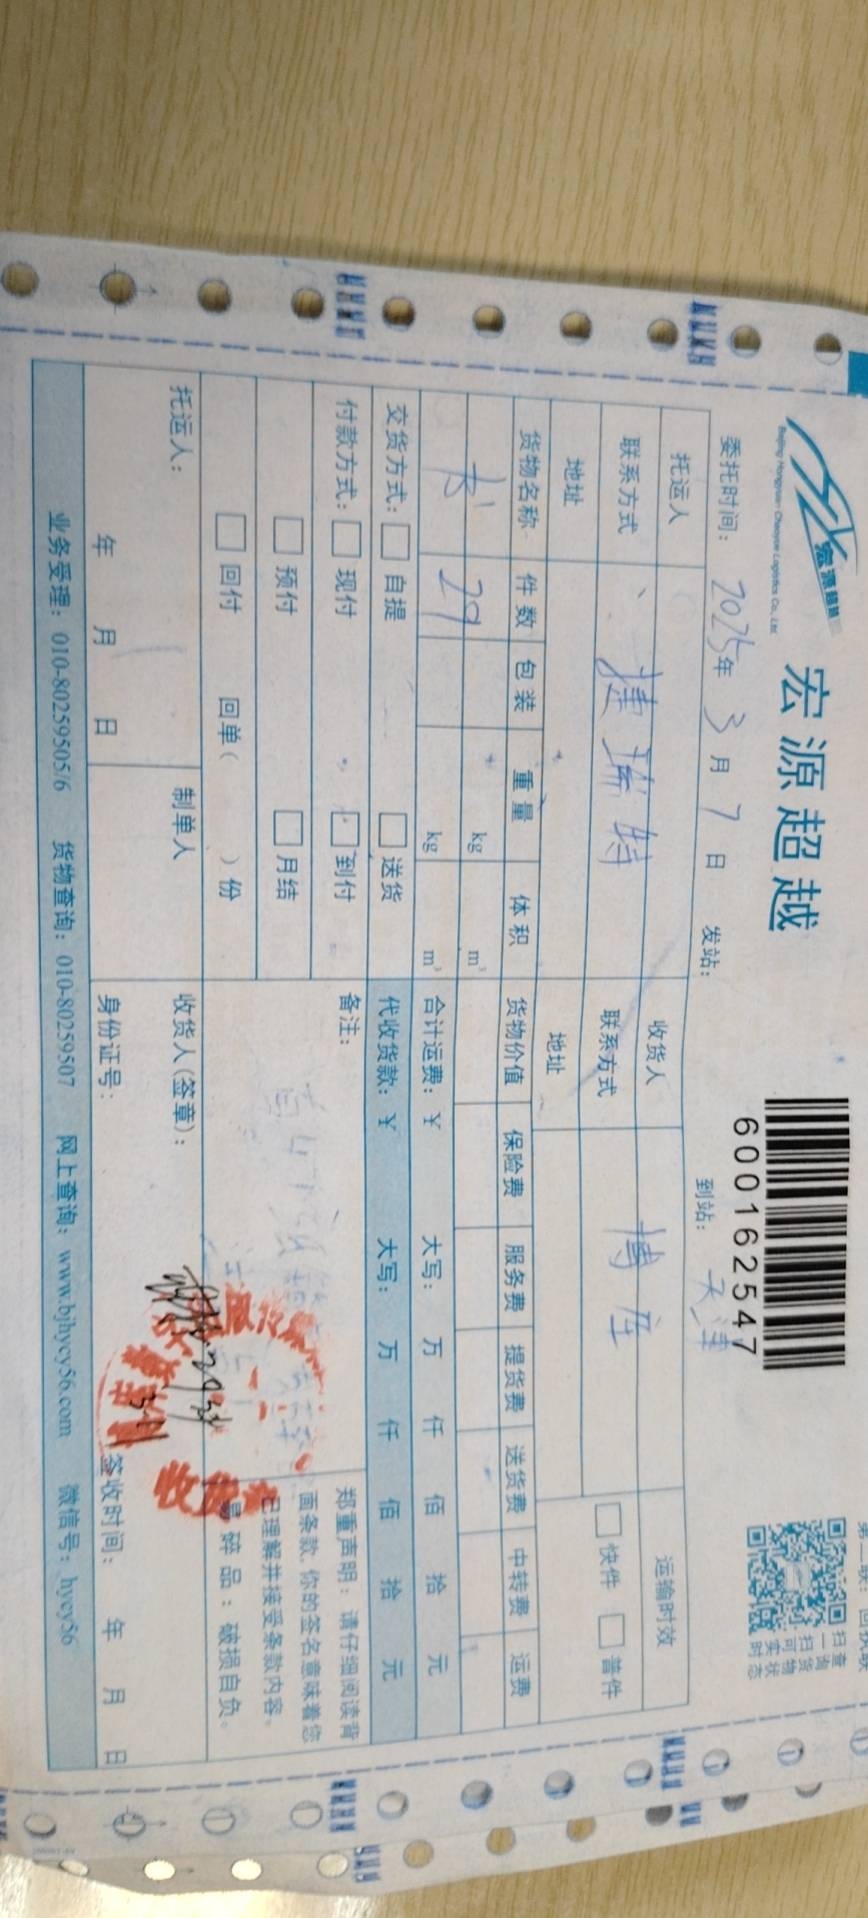 宏源超越
Beijing Hongyuan Chaoyue Logistics Co., Ltd.
宏源超越
600162547
扫一扫可实时
查询货物状态
委托时间: 2025年 3月 7日 发站: 到站: 天津
托运人 收货人 运输时效
联系方式 捷瑞特 联系方式 博库 快件 普件
地址 地址
货物名称 件数 包装 重量 体积 货物价值 保险费 服务费 提货费 送货费 中转费 运费
书 29 kg m³
kg m³ 合计运费: ¥ 大写: 万 仟 佰 拾 元
交货方式: 自提 送货 代收货款: ¥ 大写: 万 仟 佰 拾 元
付款方式: 现付 到付 备注:
预付 月结
回付 回单( )份
郑重声明: 请仔细阅读背
面条款, 你的签名意味着您
已理解并接受条款内容。
易碎品: 破损自负。
托运人: 制单人 收货人(签章):
年 月 日 身份证号: 签收时间: 年 月 日
业务受理: 010-80259505/6 货物查询: 010-80259507 网上查询: www.bjhycy56.com 微信号: hycy56